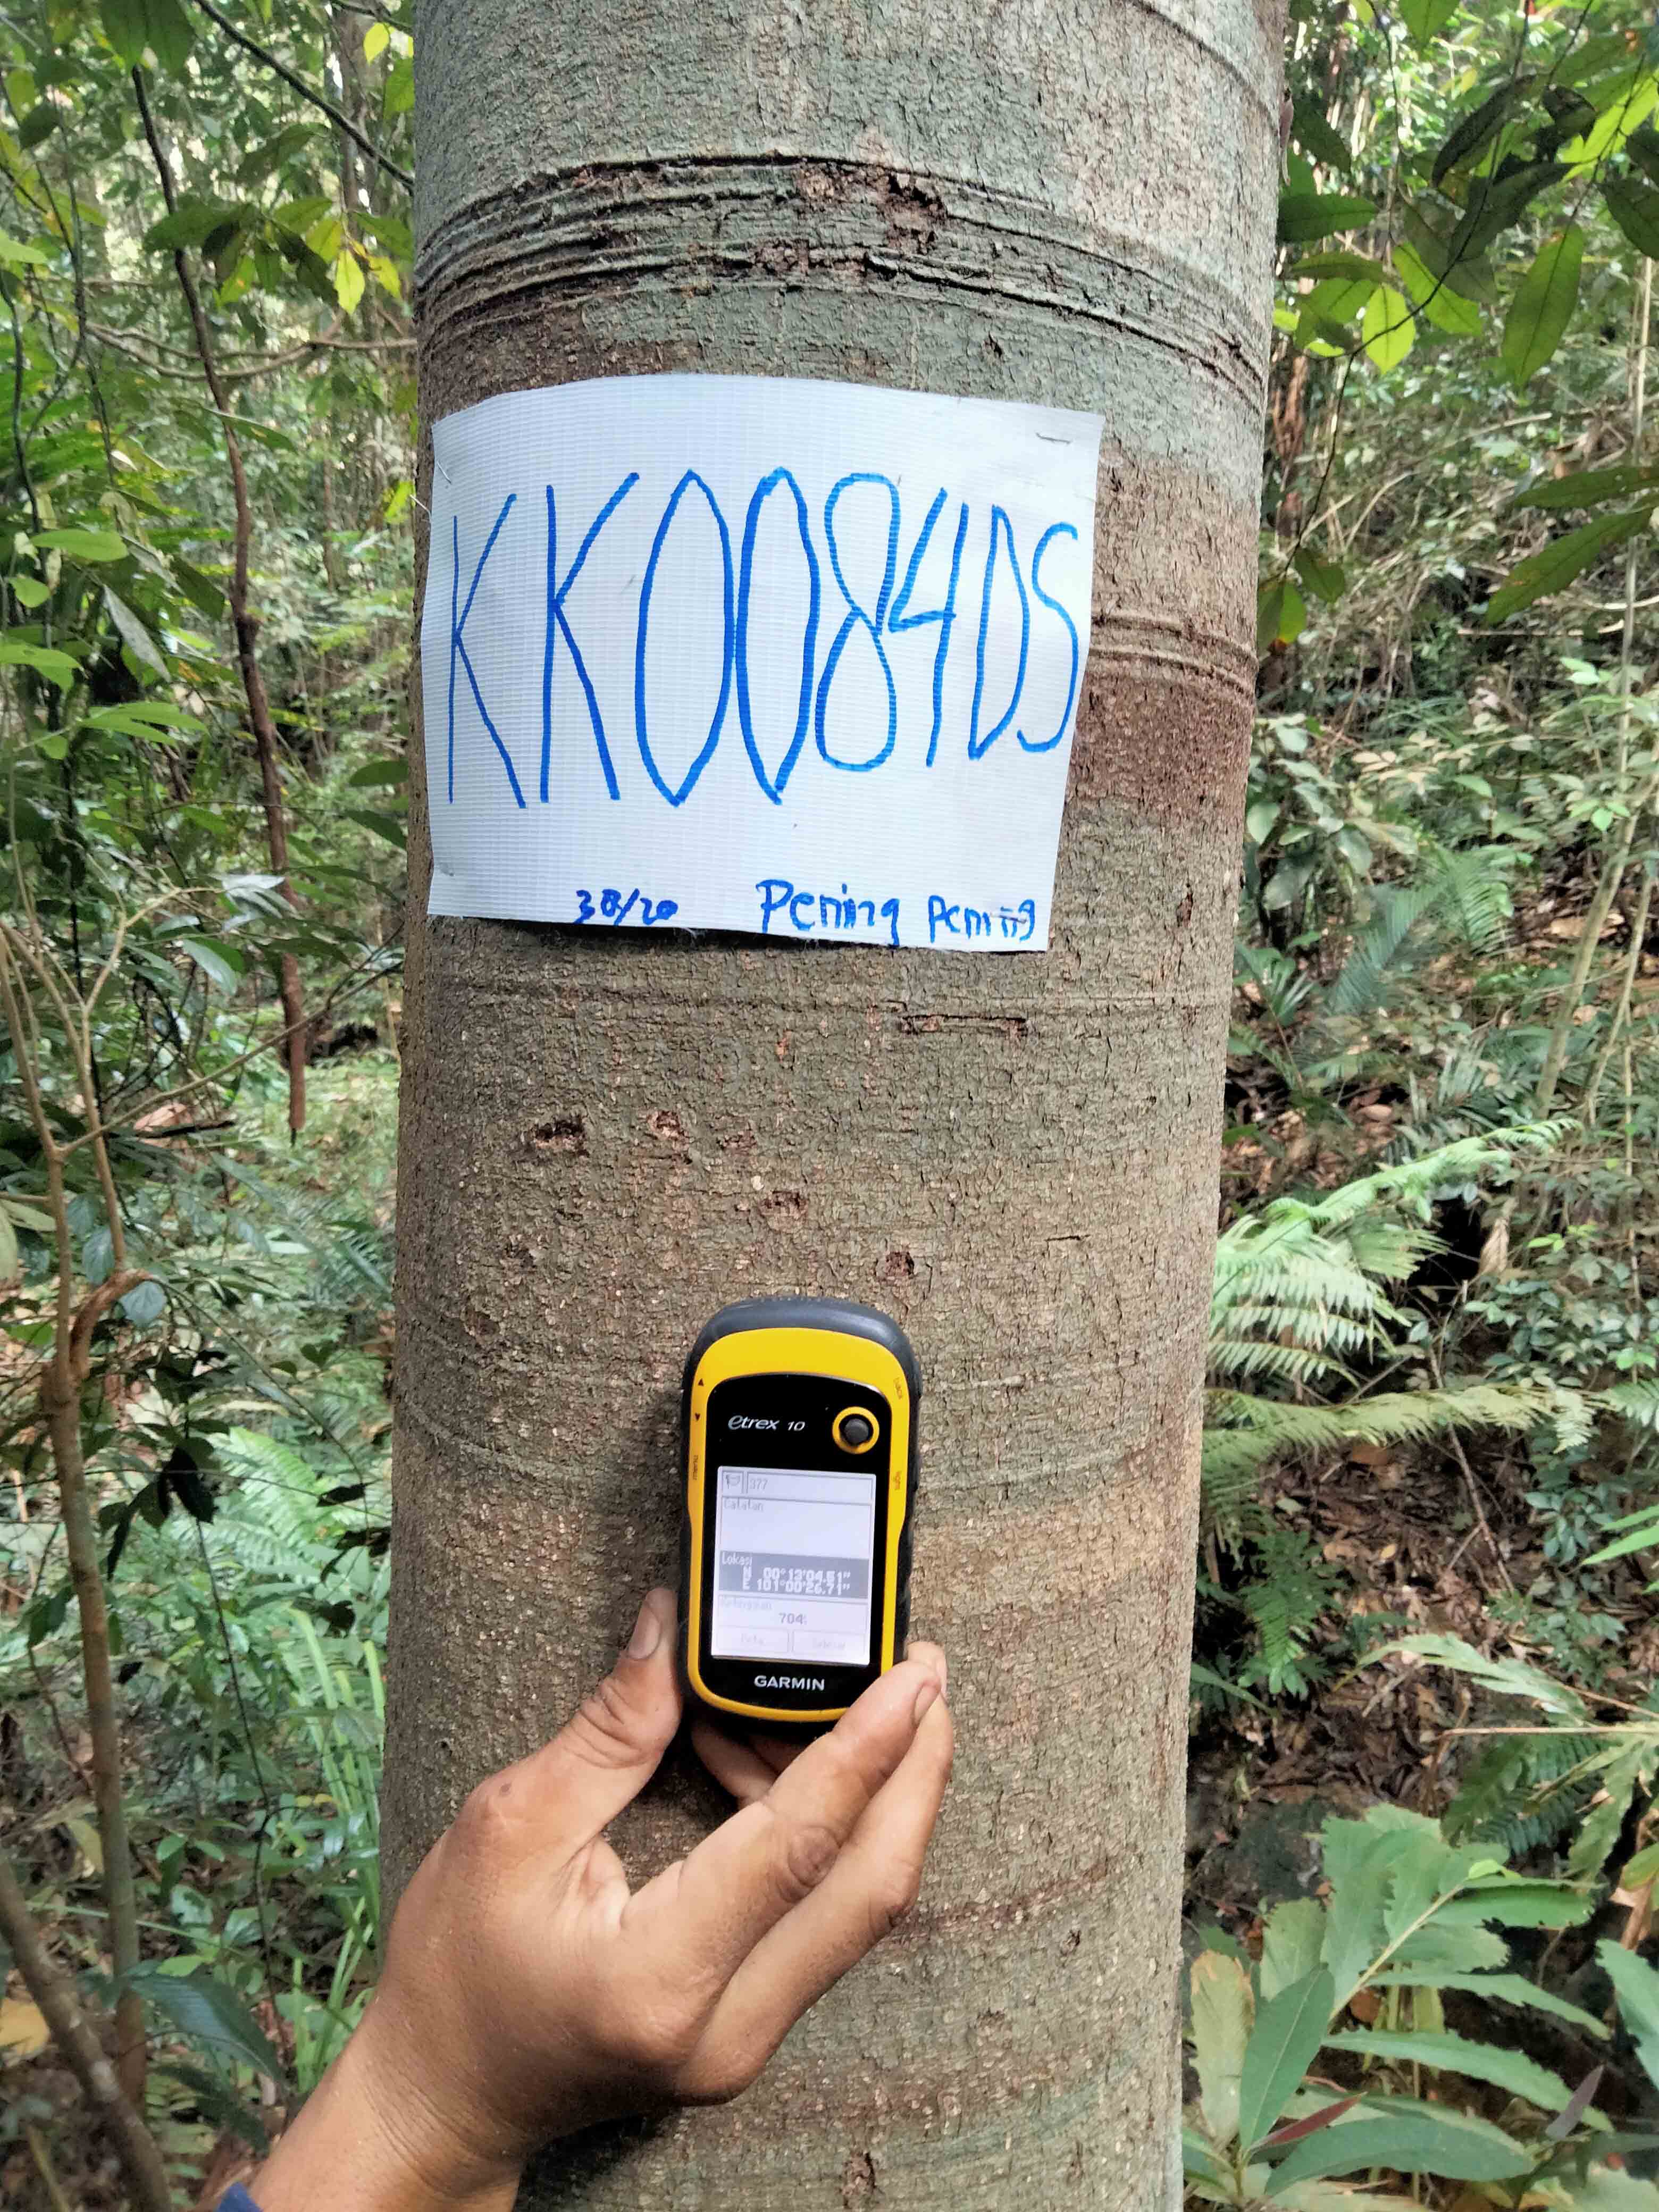 KK0084DS
38/20 Pening Pening
etrex 10
377
Catatan
Lokasi
N 00°13'04.51"
E 101°00'26.71"
704
GARMIN